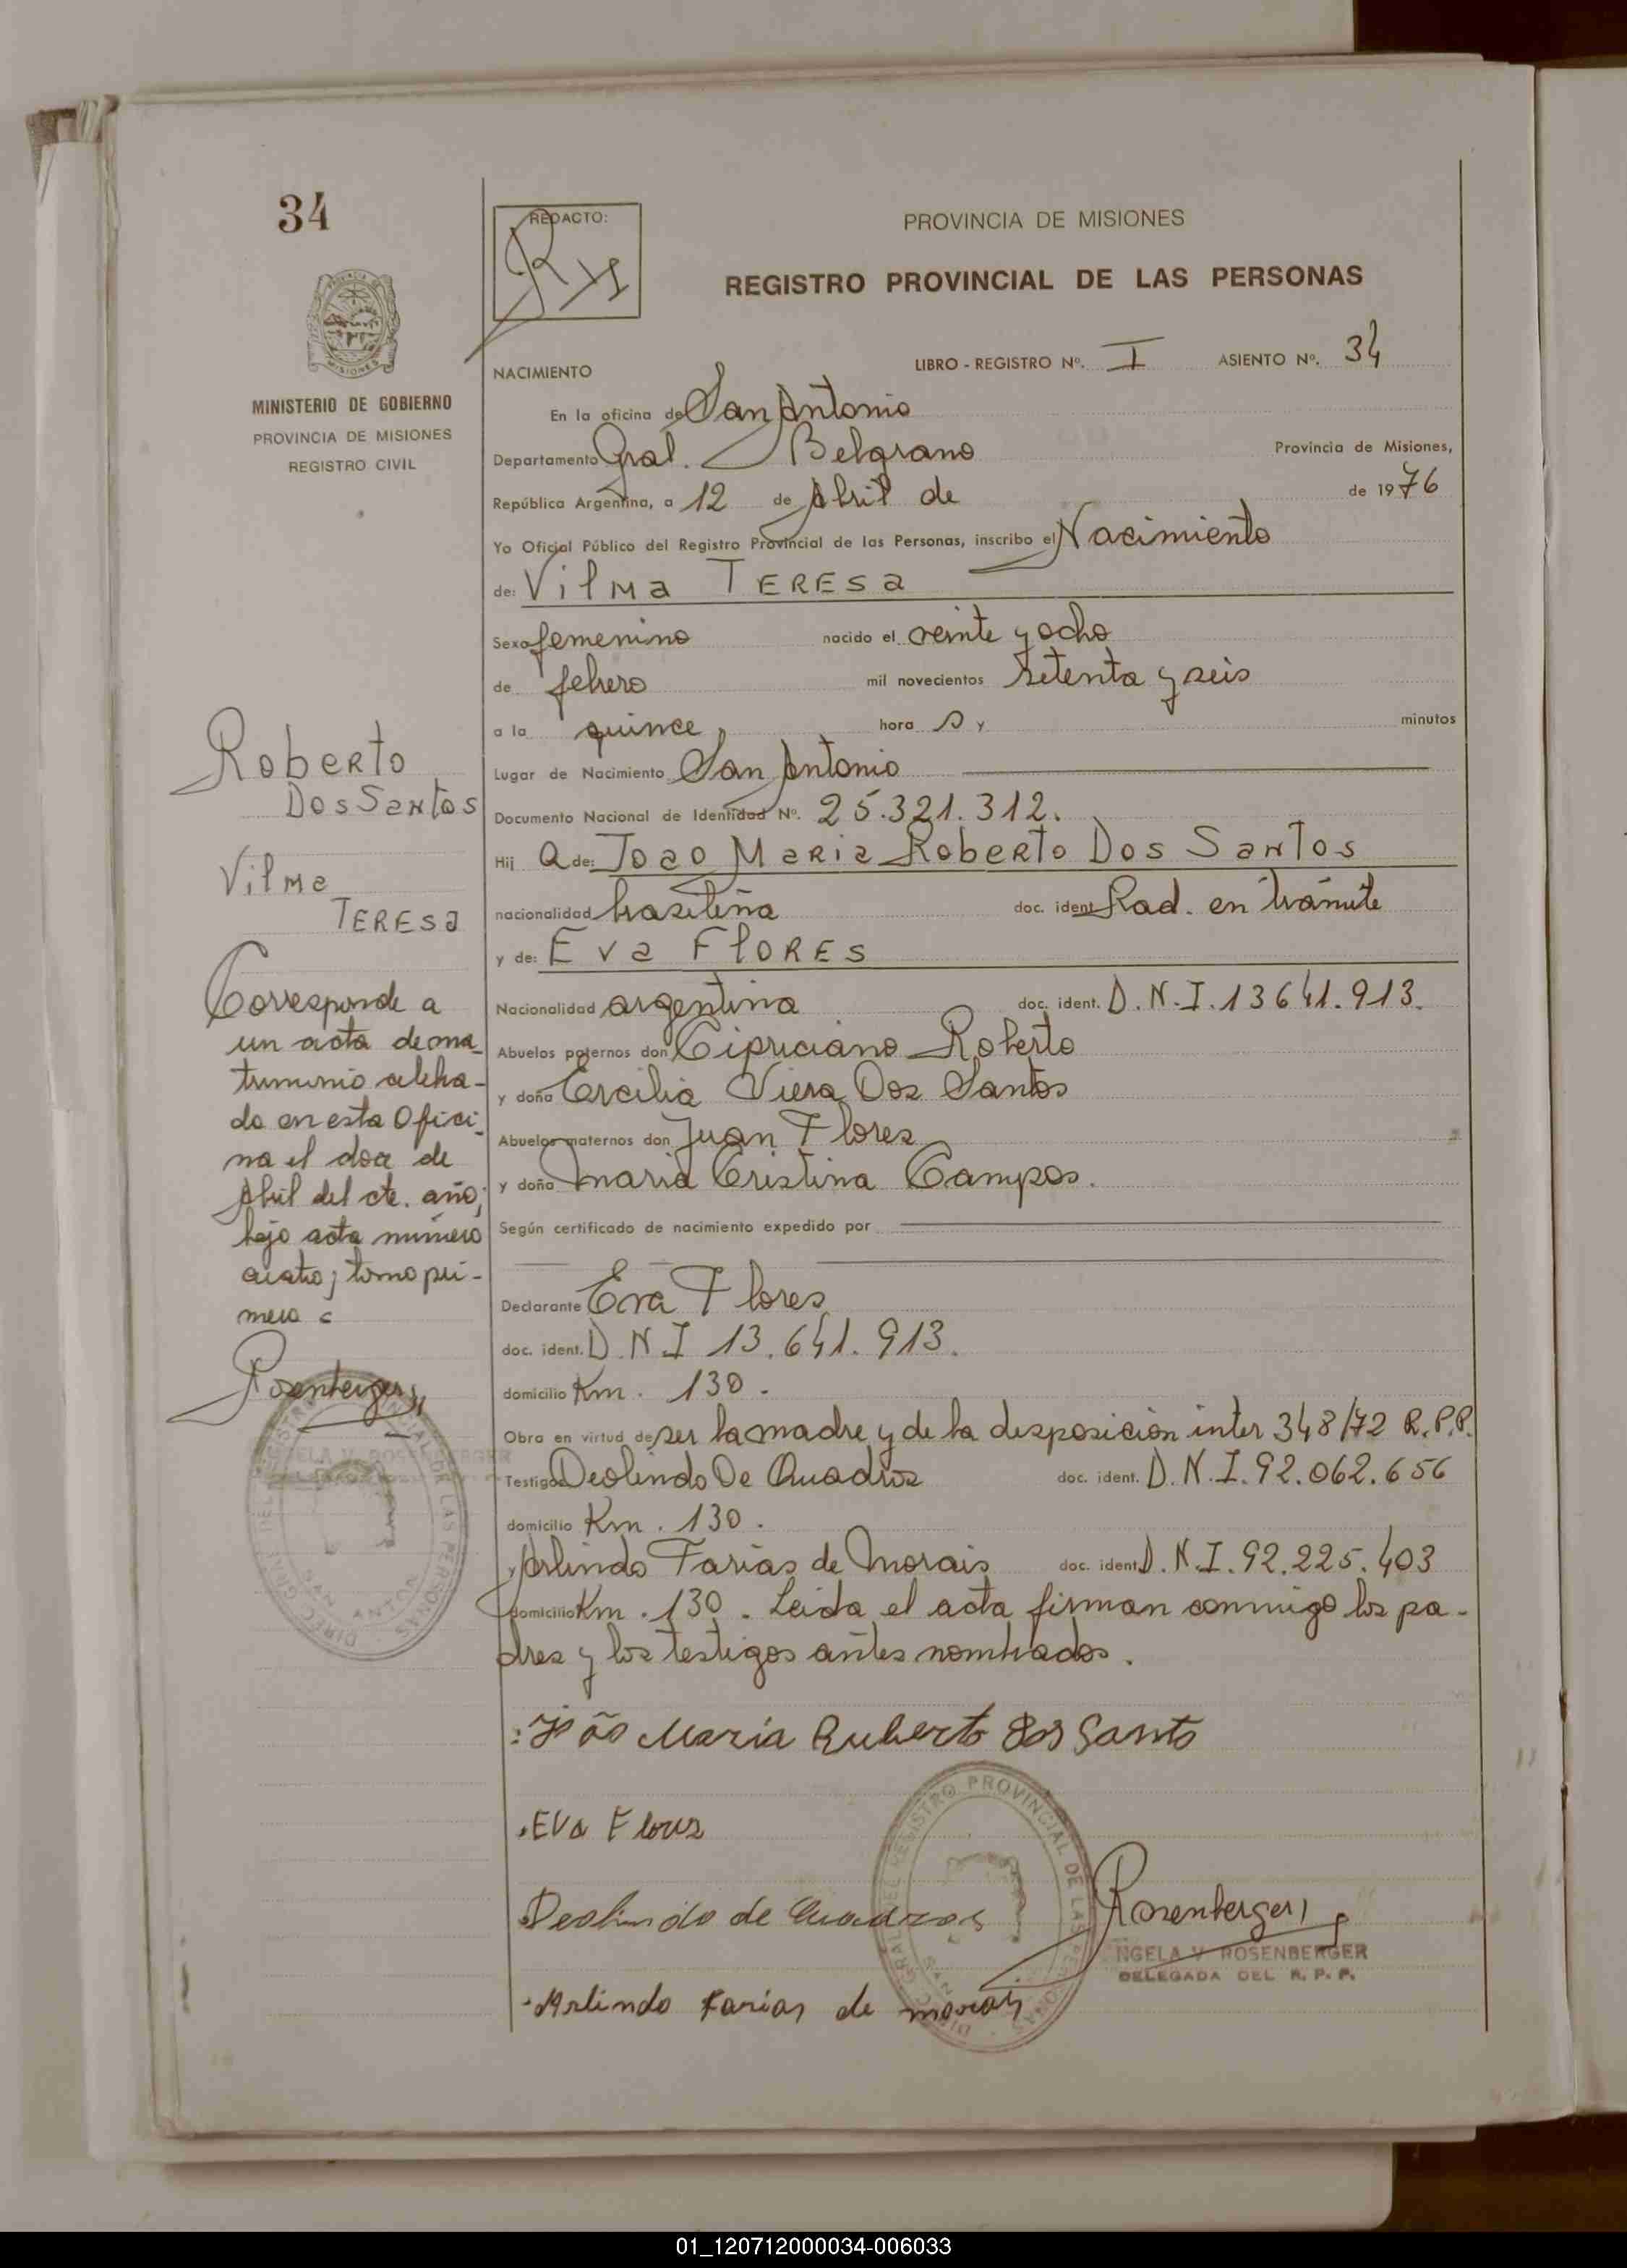 34
MINISTERIO DE GOBIERNO
PROVINCIA DE MISIONES
REGISTRO CIVIL
Roberto
Dos Santos
Vilma
TERESA
Corresponde a
un acta de ma-
trimonio celebra-
do en esta Ofici-
na el doce de
Abril del cte. año;
bajo acta número
cuatro; tomo pri-
mero
Rosenberger
REDACTO:
PROVINCIA DE MISIONES
REGISTRO PROVINCIAL DE LAS PERSONAS
NACIMIENTO LIBRO - REGISTRO Nº. I ASIENTO Nº. 34
En la oficina de San Antonio
Departamento Gral. Belgrano Provincia de Misiones,
República Argentina, a 12 de Abril de de 1976
Yo Oficial Público del Registro Provincial de las Personas, inscribo el Nacimiento
de: Vilma TERESA
Sexo femenino nacido el veinte y ocho
de febrero mil novecientos setenta y seis
a la quince hora s y minutos
Lugar de Nacimiento San Antonio
Documento Nacional de Identidad Nº. 25.321.312.
Hij a de: Joao Maria Roberto Dos Santos
nacionalidad brasileña doc. ident. Rad. en trámite
y de: Eva FlORES
Nacionalidad argentina doc. ident. D.N.I. 13641.913.
Abuelos paternos don Cipriciano Roberto
y doña Ercilia Viera Dos Santos
Abuelos maternos don Juan Flores
y doña Maria Cristina Campos.
Según certificado de nacimiento expedido por
Declarante Eva Flores
doc. ident. D.N.I 13.641.913.
domicilio Km. 130.
Obra en virtud de ser la madre y de la desposición inter 348/72 R.P.P.
Testigos Deolindo De Quadros doc. ident. D.N.I. 92.062.656
domicilio Km. 130.
y Arlindo Farias de Morais doc. ident. D.N.I. 92.225.403
domicilio Km. 130. Leida el acta firman conmigo los pa-
dres y los testigos antes nombrados.
João Maria Ruberto dos Santo
Eva Flores
Deolindo de Quadros
Rosenberger
NGELA V. ROSENBERGER
DELEGADA DEL R.P.P.
Arlindo Farias de morais
01_120712000034-006033